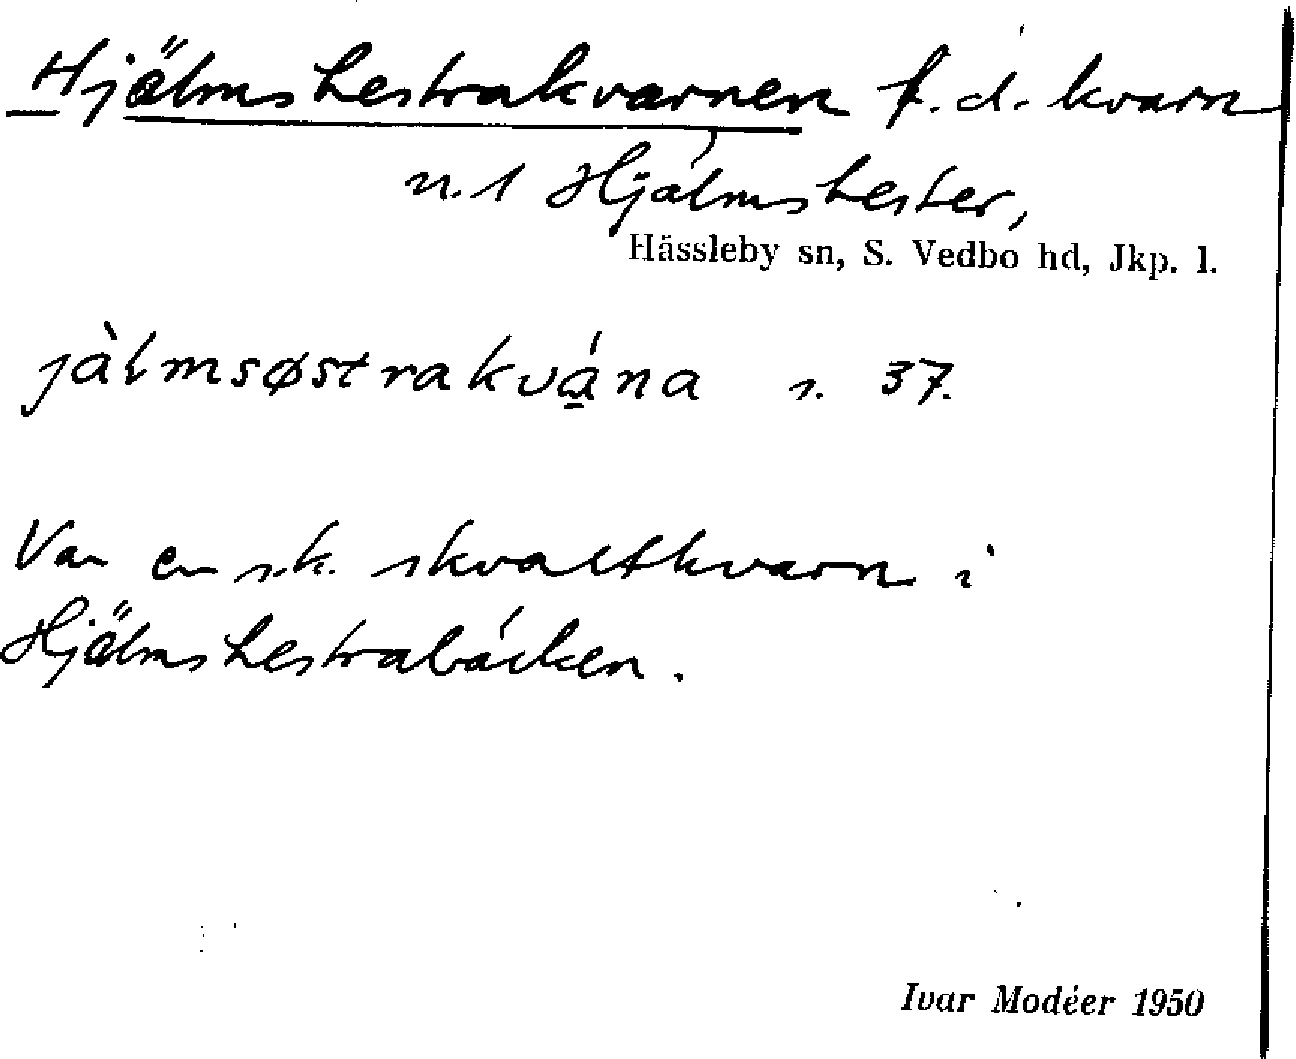 Hjälmshestrakvarnen f.d. kvarn
n. 1 Hjälmshester,
Hässleby sn, S. Vedbo hd, Jkp. l.
jàlmsøstrakvána s. 37.
Var en s.k. skvaltkvarn i
Hjälmshestrabäcken.
Ivar Modéer 1950